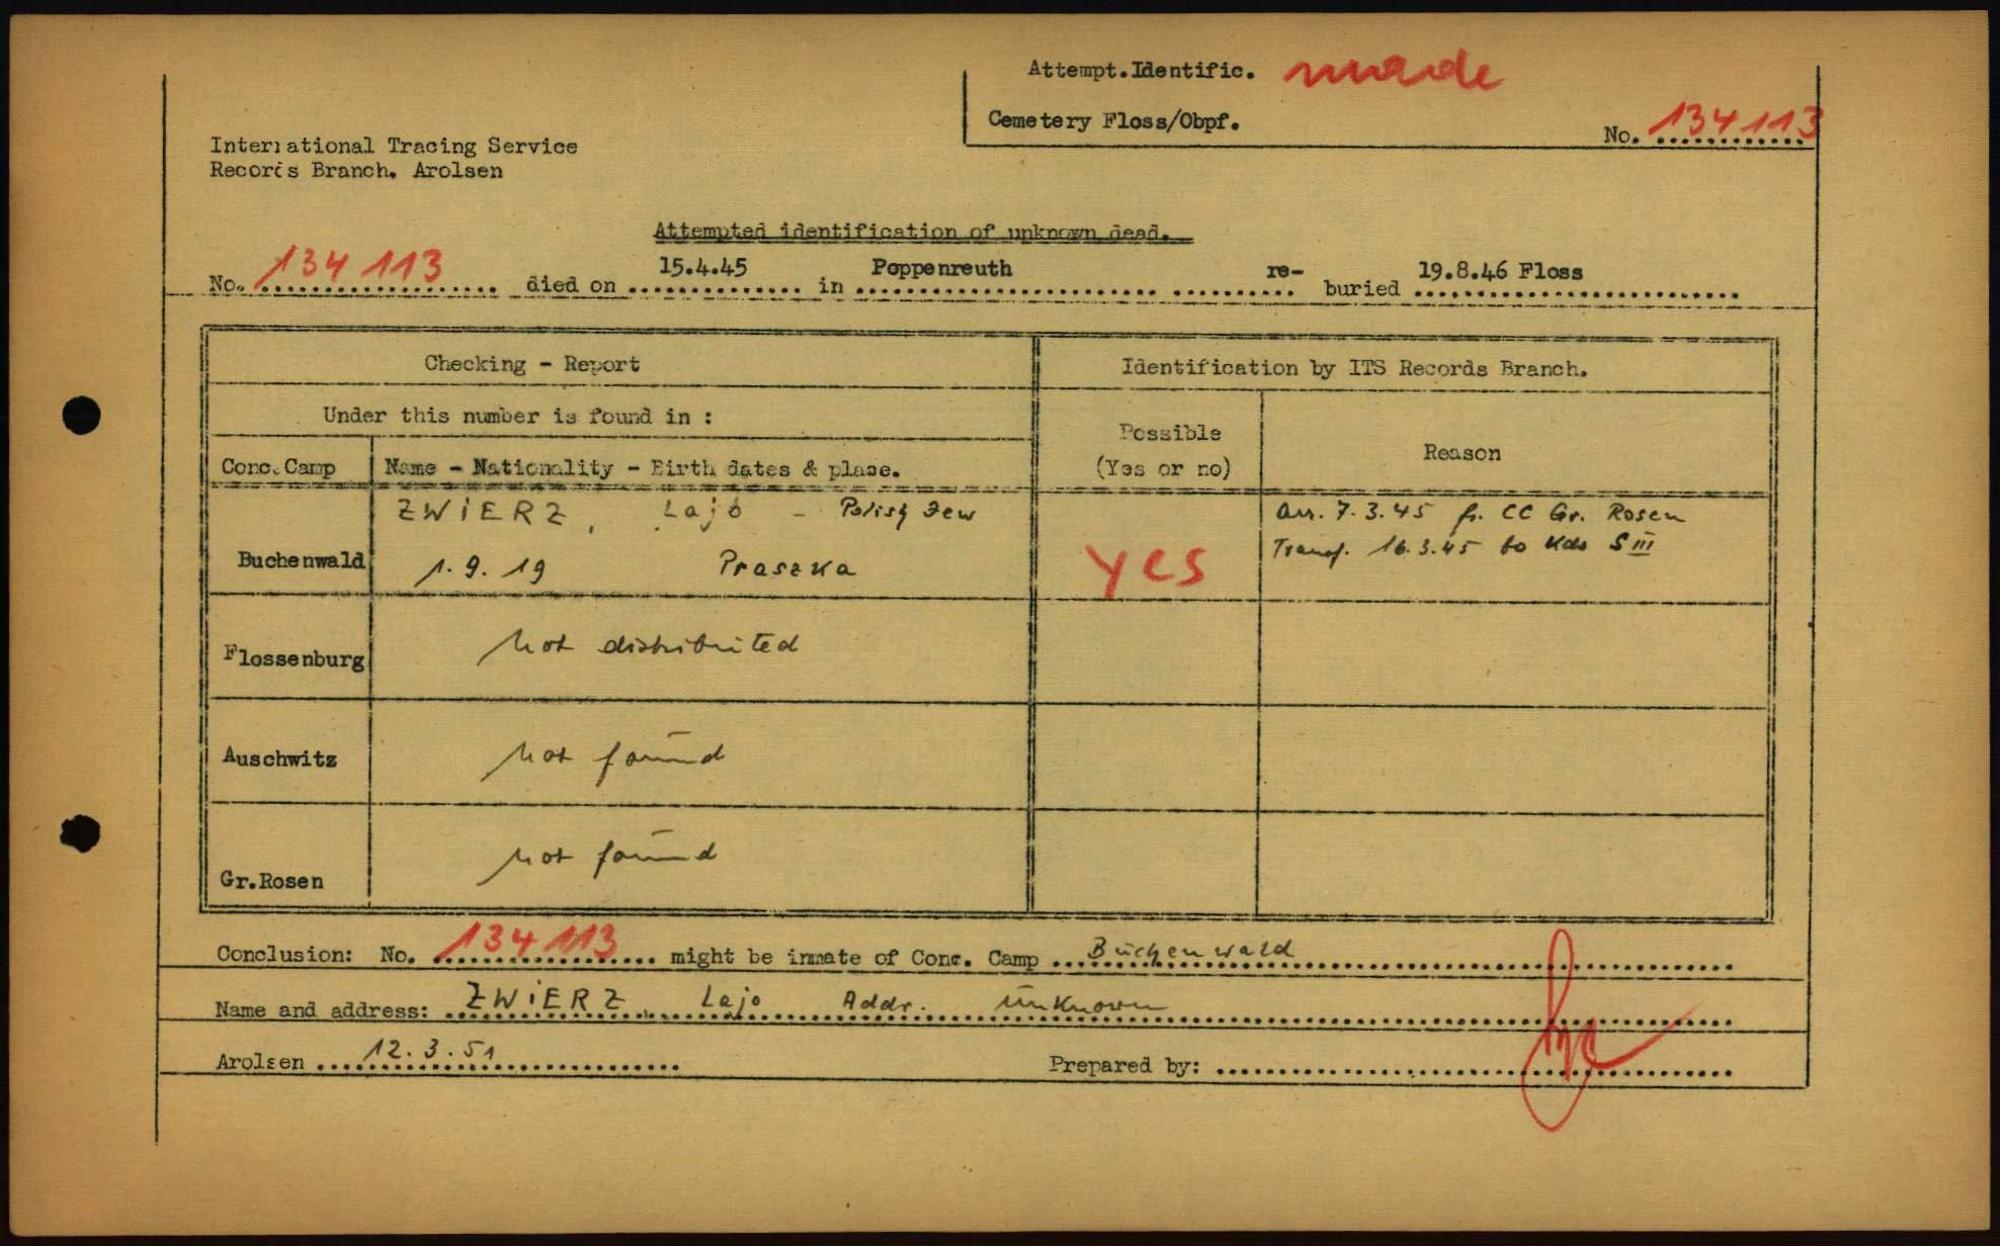 Attempt.Identific. made
Cemetery Floss/Obpf.
No. 134113
International Tracing Service
Records Branch. Arolsen
Attempted identification of unknown dead.
No. 134113 died on 15.4.45 in Poppenreuth re- buried 19.8.46 Floss
Checking - Report
Identification by ITS Records Branch.
Under this number is found in :
Possible
(Yes or no)
Reason
Conc.Camp
Name - Nationality - Birth dates & place.
ZWIERZ, Lajo - Polish Jew
Arr. 7.3.45 fr. CC Gr. Rosen
Buchenwald
1.9.19 Praszka
yes
Transf. 16.3.45 to Kdo S III
Flossenburg
not distributed
Auschwitz
not found
Gr.Rosen
not found
Conclusion: No. 134113 might be inmate of Conc. Camp Buchenwald
Name and address: ZWIERZ, Lajo Addr. unknown
Arolsen 12.3.51
Prepared by: